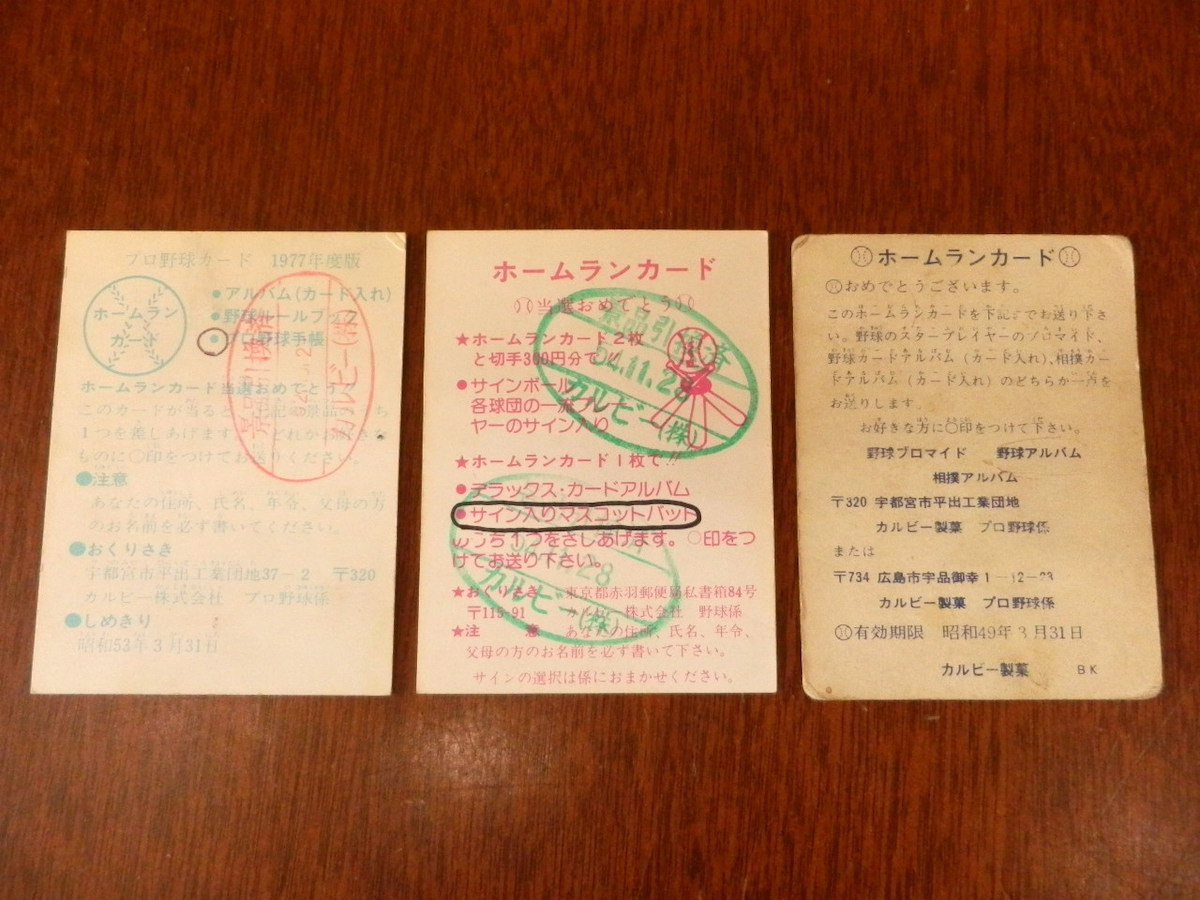 プロ野球カード 1977年度版
ホームラン
カード
●アルバム(カード入れ)
●野球ルールブック
●プロ野球手帳
ホームランカード当選おめでとう!!
このカードが当ると、上記の景品のうち
1つを差しあげます。どれかお好きな
ものに○印をつけてお送りください。
●注意
あなたの住所、氏名、年令、父母の方
のお名前を必ず書いてください。
●おくりさき
宇都宮市平出工業団地37-2 〒320
カルビー株式会社 プロ野球係
●しめきり
昭和53年3月31日
景品引換済
カルビー(株)
ホームランカード
当選おめでとう
★ホームランカード2枚
と切手300円分で!!
●サインボール
各球団の一流プレー
ヤーのサイン入り
★ホームランカード1枚で!!
●デラックス・カードアルバム
●サイン入りマスコットバット
のうち1つをさしあげます。○印をつ
けてお送り下さい。
★おくりさき 東京都赤羽郵便局私書箱84号
〒115-91 カルビー株式会社 野球係
★注意 あなたの住所、氏名、年令、
父母の方のお名前を必ず書いて下さい。
サインの選択は係におまかせください。
景品引換済
54.11.28
カルビー(株)
11.28
カルビー(株)
ホームランカード
おめでとうございます。
このホームランカードを下記までお送り下さ
い。野球のスタープレイヤーのブロマイド、
野球カードアルバム(カード入れ)、相撲カー
ドアルバム(カード入れ)のどちらか一点を
お送りします。
お好きな方に○印をつけて下さい。
野球ブロマイド 野球アルバム
相撲アルバム
〒320 宇都宮市平出工業団地
カルビー製菓 プロ野球係
または
〒734 広島市宇品御幸1-12-23
カルビー製菓 プロ野球係
有効期限 昭和49年3月31日
カルビー製菓 BK